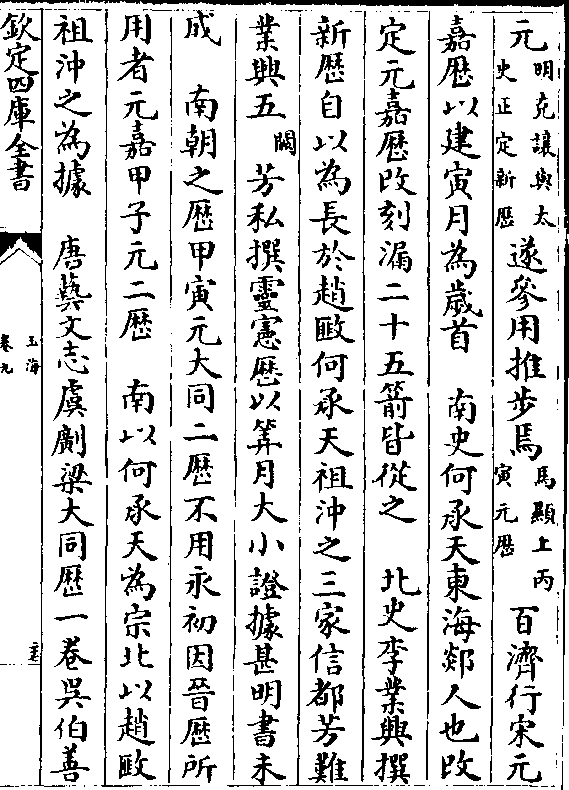 元明克讓與太史正定新歷遂參用推步焉馬顯上丙寅元歷 百濟行宋元
嘉歷以建寅月為歳首 南史何承天東海郯人也改
定元嘉歷改刻漏二十五箭皆從之 北史李業興撰
新歷自以為長於趙𢾺何承天祖沖之三家信都芳難
業興五闕 芳私撰靈憲歷以筭月大小證據甚明書未
成 南朝之歷甲寅元大同二歷不用永初因晉歷所
用者元嘉甲子元二歷 南以何承天為宗北以趙𢾺
祖沖之為據 唐藝文志虞𠠎梁大同歷一卷吳伯善
欽定四庫全書
玉海
卷九